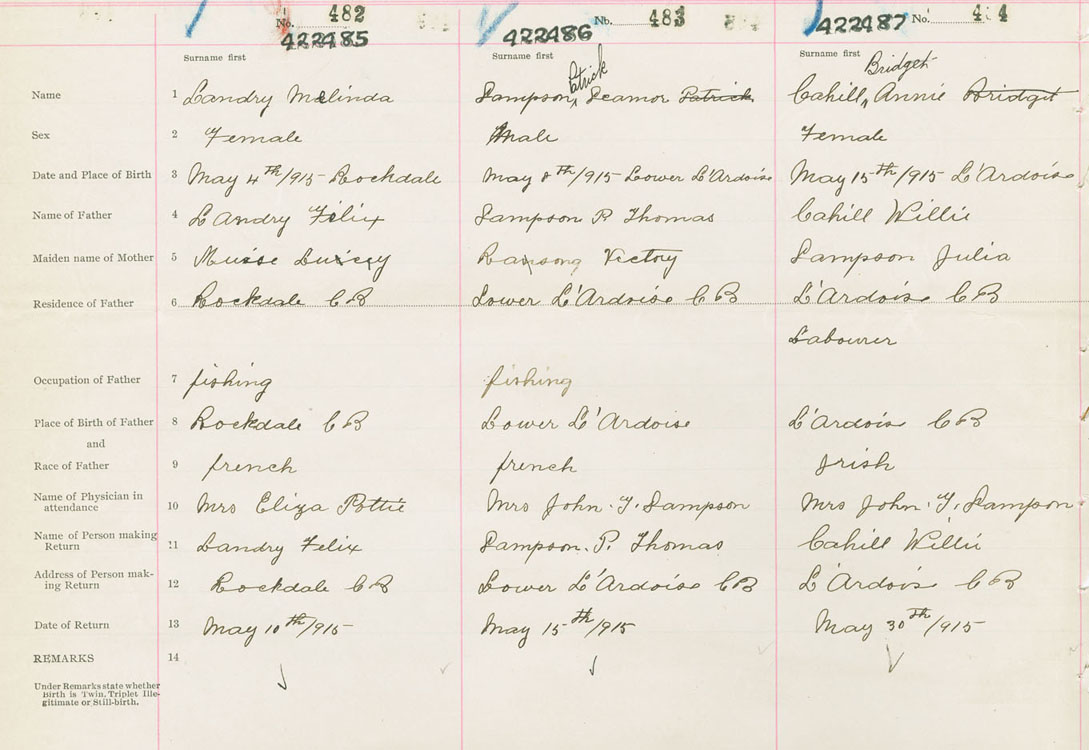 No. 482 Nb. 483 No. 484
422485 422486 422487
Surname first Surname first Surname first
Patrick Bridget
Name 1 Landry Melinda Sampson, Seamor Patrick Cahill, Annie Bridget
Sex 2 Female Male Female
Date and Place of Birth 3 May 4th/915 Rockdale May 8th/915 Lower L'Ardoise May 15th/915 L'Ardoise
Name of Father 4 Landry Felix Sampson P. Thomas Cahill Willie
Maiden name of Mother 5 Victory Sampson Julia
Residence of Father 6 Rockdale CB Lower L'Ardoise CB L'Ardoise CB
Labourer
Occupation of Father 7 fishing fishing
Place of Birth of Father 8 Rockdale CB Lower L'Ardoise L'Ardoise CB
and
Race of Father 9 french french Irish
Name of Physician in
attendance 10 Mrs Eliza Pottie Mrs John. T. Sampson Mrs John. T. Sampson
Name of Person making
Return 11 Landry Felix Sampson. P. Thomas Cahill Willie
Address of Person mak-
ing Return 12 Rockdale CB Lower L'Ardoise CB L'Ardoise CB
Date of Return 13 May 10th/915 May 15th/915 May 30th/915
REMARKS 14
Under Remarks state whether
Birth is Twin, Triplet Ille-
gitimate or Still-birth.